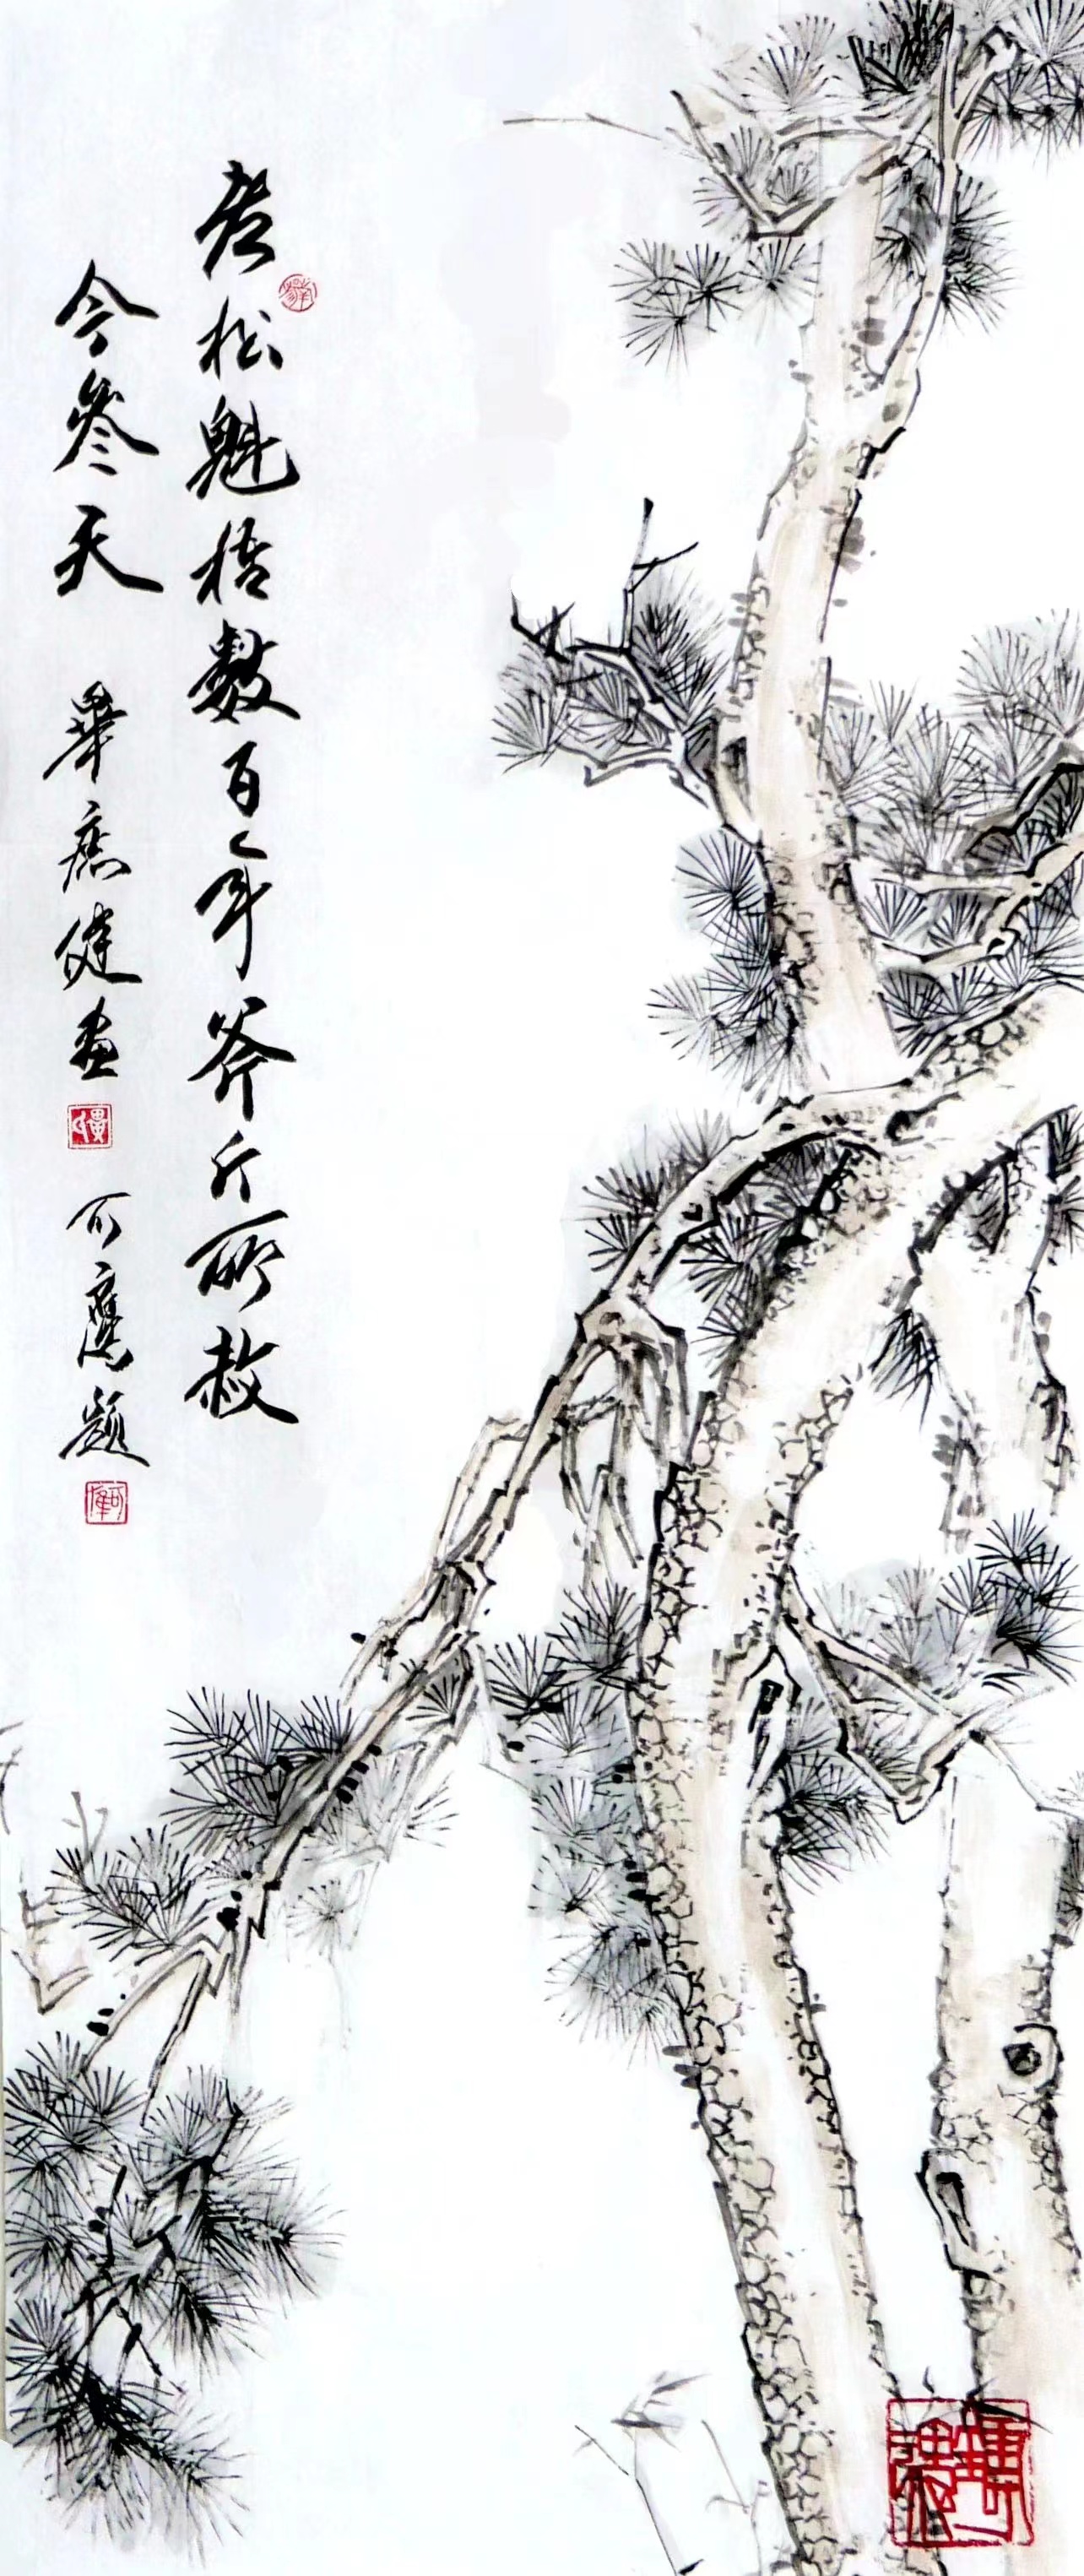 老松魁梧數百年斧斤所赦
今參天 畢庶健畫 可鷹題